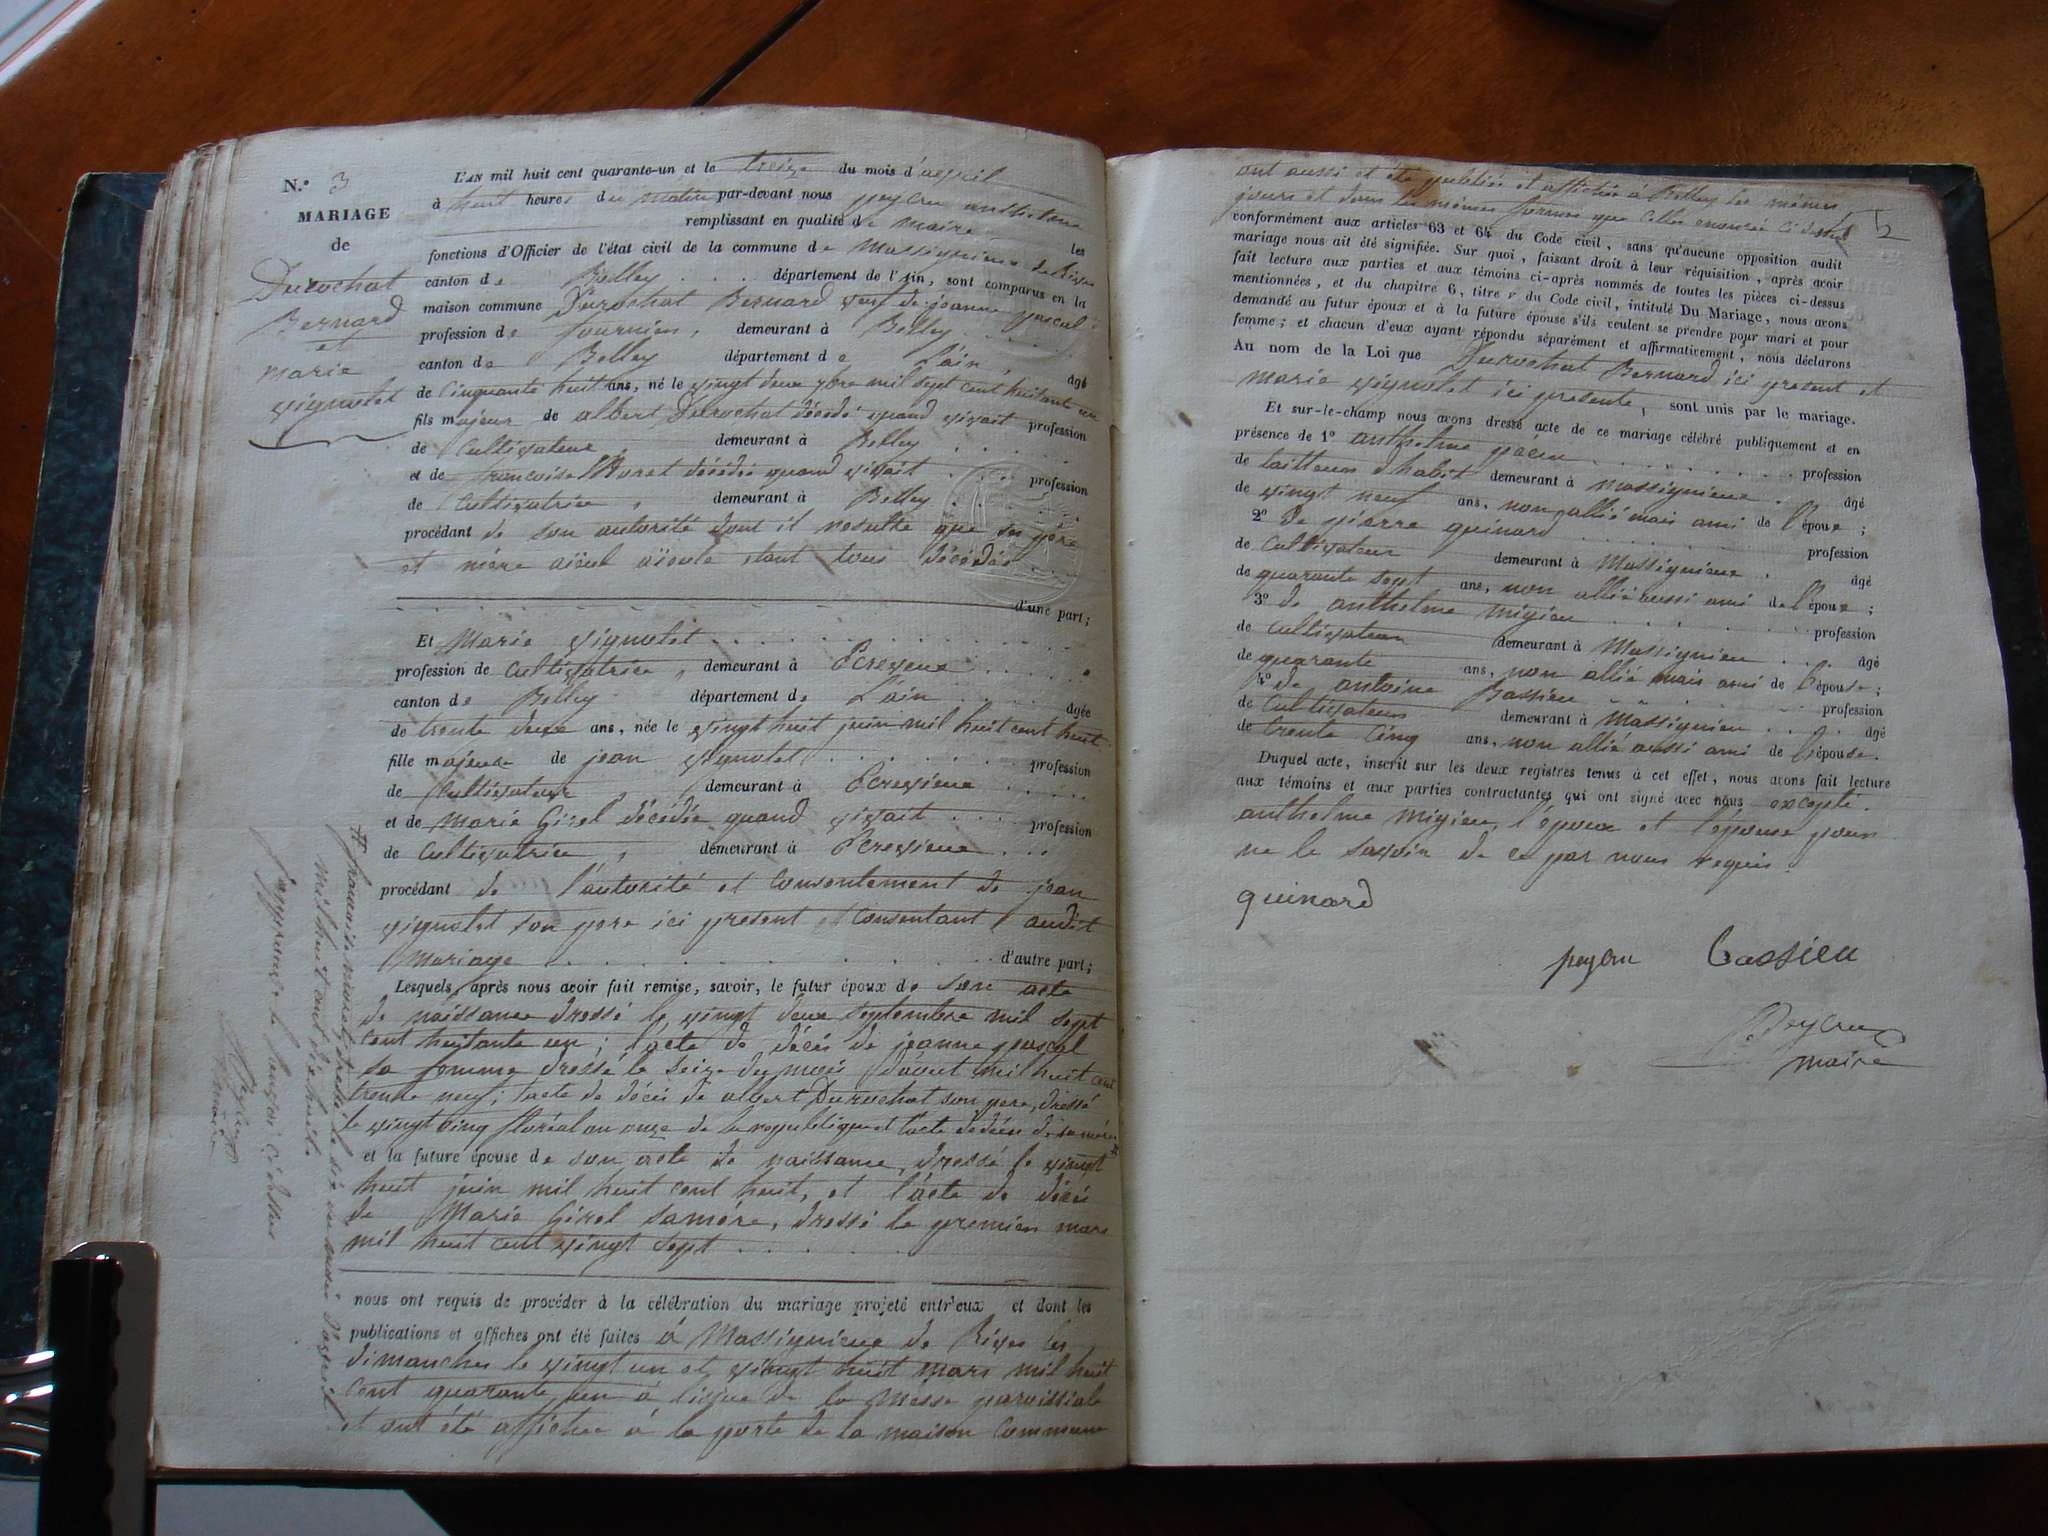 N.º 3
MARIAGE
de
Durochat
Bernard
et
marie
vignolet
L'AN mil huit cent quarante-un et le treize du mois d'avril
à huit heures du matin par-devant nous peycru anthelme
remplissant en qualité de maire les
fonctions d'Officier de l'état civil de la commune de Massignieux de Rives
canton de Belley département de l'Ain, sont comparus en la
maison commune Durochat Bernard veuf de jeanne pascal
profession de journier, demeurant à Belley
canton de Belley département de l'ain, âgé
de Cinquante huit ans, né le vingt deux 7bre mil sept cent huitant un
fils majeur de albert Durochat décédé quand vivait profession
de Cultivateur demeurant à Belley
et de françoise décédée quand vivait profession
de Cultivatrice, demeurant à Belley
procédant de son autorité dont il resulte que ses père
et mère aïeul aïeule étant tous décédés
d'une part;
Et Marie vignolet
profession de Cultivatrice, demeurant à Ecrevieux
canton de Belley département de L'ain âgée
de trente deux ans, née le vingt huit juin mil huit cent huit
fille majeure de jean vignolet profession
de Cultivateur, demeurant à Ecrevieux
et de Marie Girel décédée quand vivait profession
de Cultivatrice, demeurant à Ecrevieux
procédant de l'autorité et consentement de jean
vignolet son père ici present et consentant audit
Mariage d'autre part;
Lesquels, après nous avoir fait remise, savoir, le futur époux de son acte
de naissance dressé le vingt deux Septembre mil sept
cent huitante un; l'acte de décès de jeanne pascal
sa femme dressé le seize du mois d'aout mil huit cent
trente neuf; l'acte de décès de albert Durochat son père, dressé
le vingt cinq floréal an onze de la republique et l'acte de décès de sa mère
et la future épouse de son acte de naissance, dressé le vingt
huit juin mil huit cent huit, et l'acte de décès
de Marie Girel sa mère, dressé le premier mars
mil huit cent vingt sept
nous ont requis de procéder à la célébration du mariage projeté entr'eux et dont les
publications et affiches ont été faites à Massignieux de Rives les
dimanches le vingt un et vingt huit mars mil huit
cent quarante un à l'issue de la Messe paroissiale
et ont été affichée à la porte de la maison Commune
mil huit cent dix huit
maire
ont aussi et été publiée et affichée à Belley les mêmes
jours et dans les mêmes formes que celles enoncée ci dessus
conformément aux articles 63 et 64 du Code civil, sans qu'aucune opposition audit
mariage nous ait été signifiée. Sur quoi, faisant droit à leur réquisition, après avoir
fait lecture aux parties et aux témoins ci-après nommés de toutes les pièces ci-dessus
mentionnées, et du chapitre 6, titre v du Code civil, intitulé Du Mariage, nous avons
demandé au futur époux et à la future épouse s'ils veulent se prendre pour mari et pour
femme; et chacun d'eux ayant répondu séparément et affirmativement, nous déclarons
Au nom de la Loi que Durochat Bernard ici present et
marie vignolet ici presente, sont unis par le mariage.
Et sur-le-champ nous avons dressé acte de ce mariage célébré publiquement et en
présence de 1º anthelme profession
de tailleur d'habit demeurant à Massignieux âgé
de vingt neuf ans, non allié mais ami de l'époux;
2º de pierre guinard profession
de Cultivateur demeurant à Massignieux âgé
de quarante sept ans, non allié aussi ami de l'époux;
3º de anthelme migieu profession
de Cultivateur demeurant à Massignieu âgé
de quarante ans, non allié mais ami de l'épouse;
4º de antoine Bassieu profession
de Cultivateur demeurant à Massignieu âgé
de trente Cinq ans, non allié aussi ami de l'épouse.
Duquel acte, inscrit sur les deux registres tenus à cet effet, nous avons fait lecture
aux témoins et aux parties contractantes qui ont signé avec nous excepté
anthelme Migieu, l'époux et l'épouse pour
ne le savoir de ce par nous requis.
guinard
peycru Bassieu
Peycru
maire